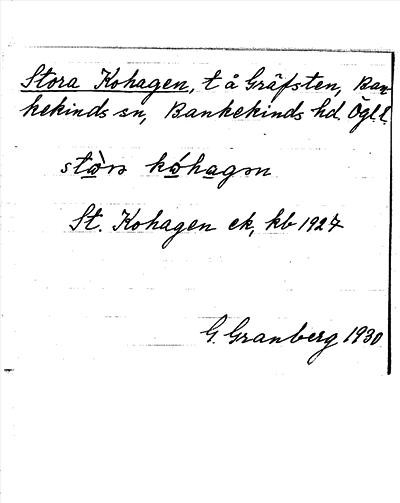 Stora Kohagen, t å Gräfsten, Ban-
kekinds sn, Bankekinds hd Ögl.
St. Kohagen ek, kb 1927
G. Granberg 1930